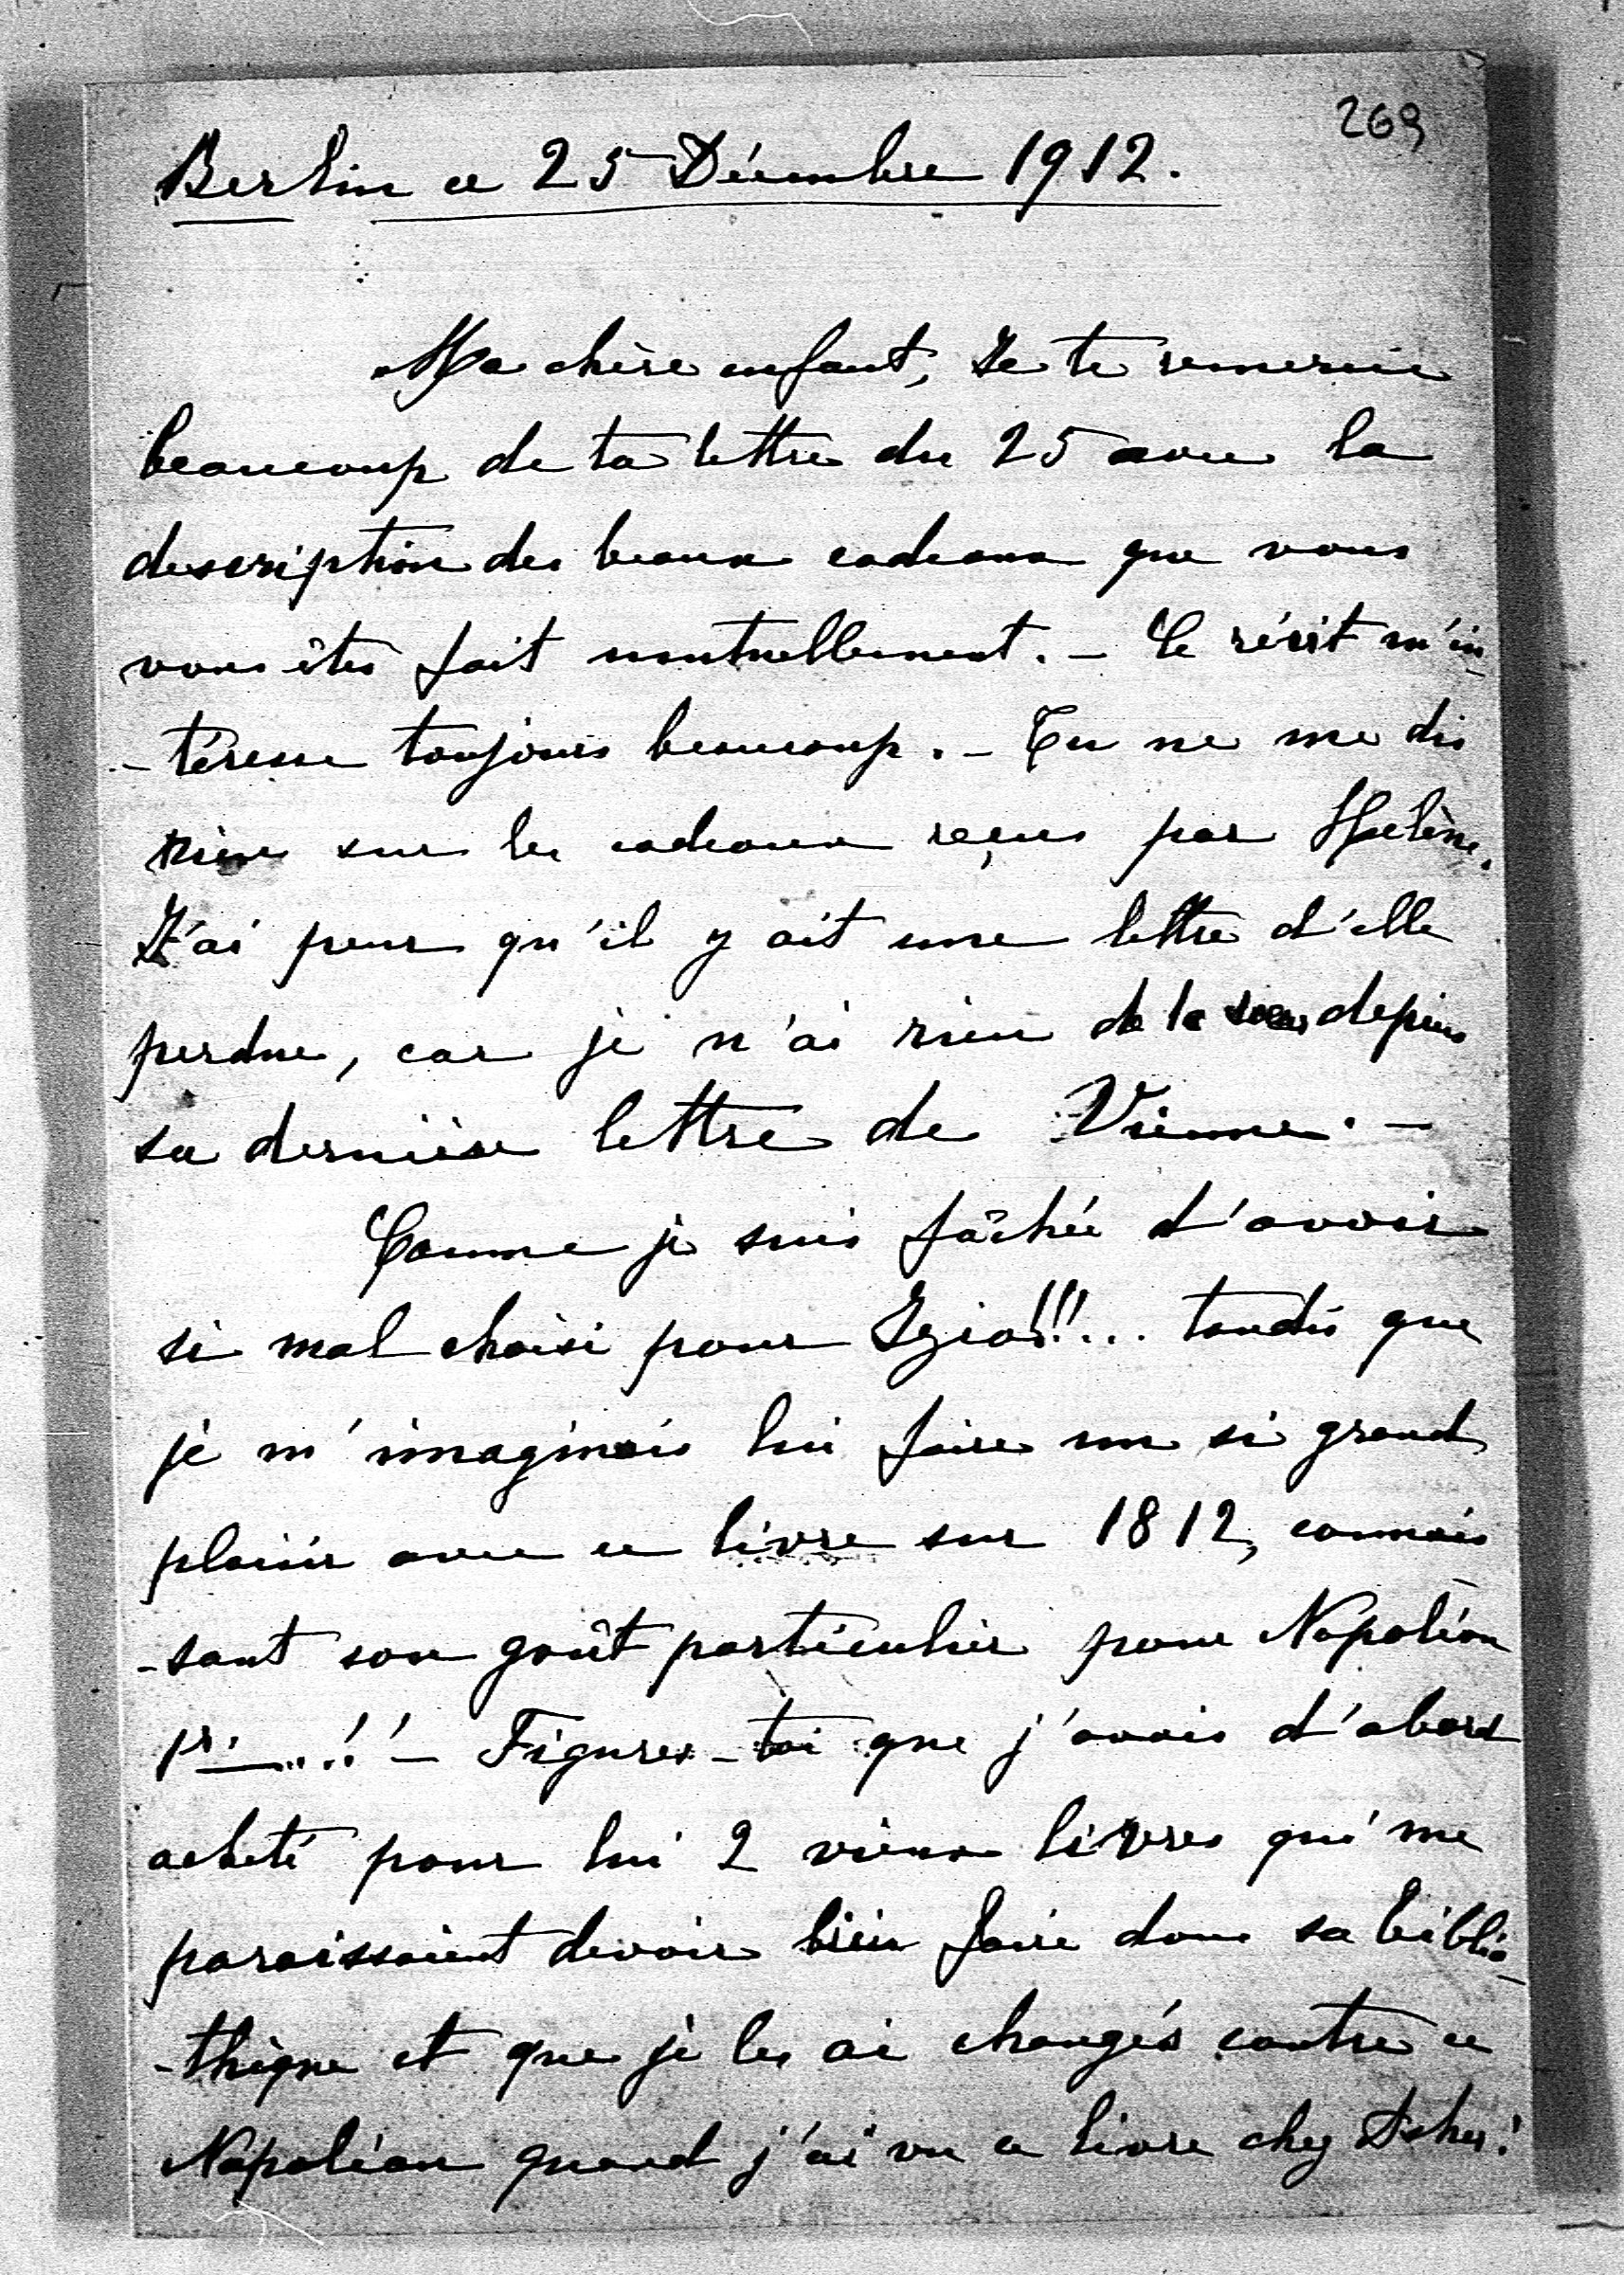 269
Berlin ce 25 Décembre 1912.
Ma chère enfant, Je te remercie
beaucoup de ta lettre du 25 avec la
description des beaux cadeaux que vous
vous êtes fait mutuellement. - Ce récit m'in-
-téresse toujours beaucoup. - Tu ne me dis
rien sur les cadeaux reçus par Hélène.
J'ai peur qu'il y ait une lettre d'elle
perdue, car je n'ai rien depuis
sa dernière lettre de Vienne. -
Comme je suis fâchée d'avoir
si mal choisi pour Izio!!!... tandis que
je m'imaginais lui faire un si grand
plaisir avec ce livre sur 1812, connais-
-sant son goût particulier pour Napoléon
1r...!! - Figures-toi que j'avais d'abord
acheté pour lui 2 vieux livres qui me
paraissaient devoir bien faire dans sa biblio-
-thèque et que je les ai changés contre ce
Napoléon quand j'ai vu ce livre chez Asher!